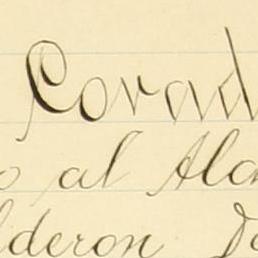 Corad
o al Alca
lderon De